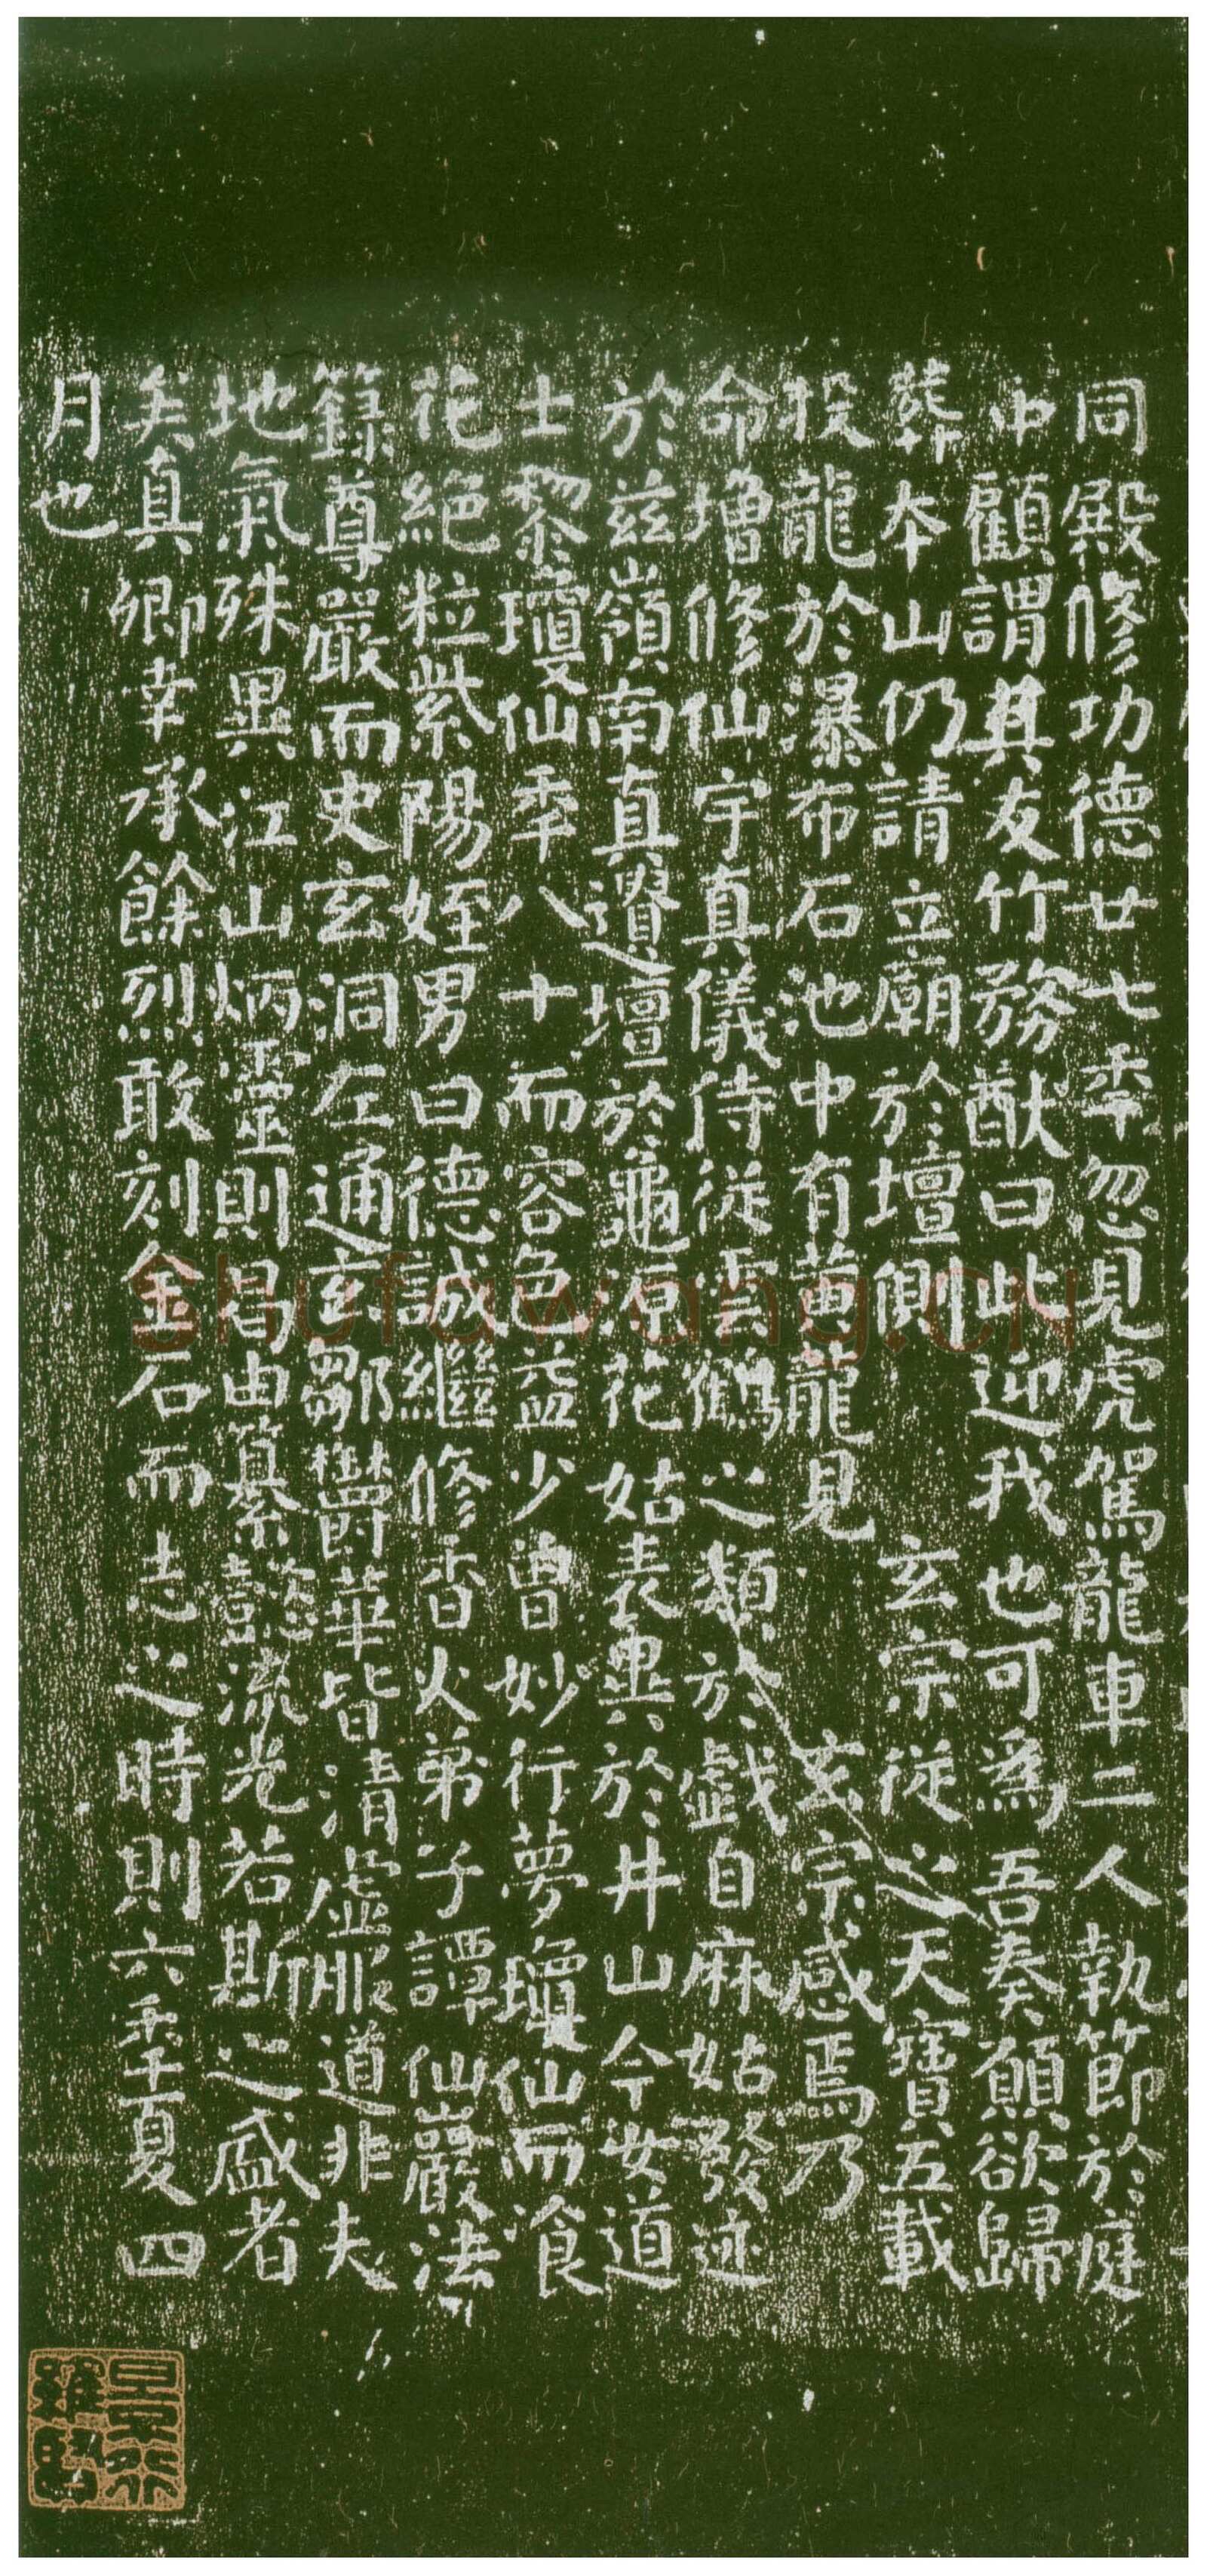 同殿修功德廿七年忽見虎駕龍車二人執節於庭
中顧謂其友竹務猷曰此迎我也可為吾奏願欲歸
葬本山仍請立廟於壇側 玄宗從之天寶五載
投龍於瀑布石池中有黃龍見 玄宗感焉乃
命增修仙宇真儀侍從雲鶴之類於戲自麻姑發迹
於茲嶺南真遺壇於龜源花姑表異於井山今女道
士黎瓊仙年八十而容色益少曾妙行夢瓊仙而飡
花絕粒紫陽姪男曰德誠繼修香火弟子譚仙巖法
籙尊嚴而史玄洞左通玄鄒鬱華皆清虛服道非夫
地氣殊異江山炳靈則曷由纂懿流光若斯之盛者
矣真卿幸承餘烈敢刻金石而志之時則六年夏四
月也
Shufawang.CN